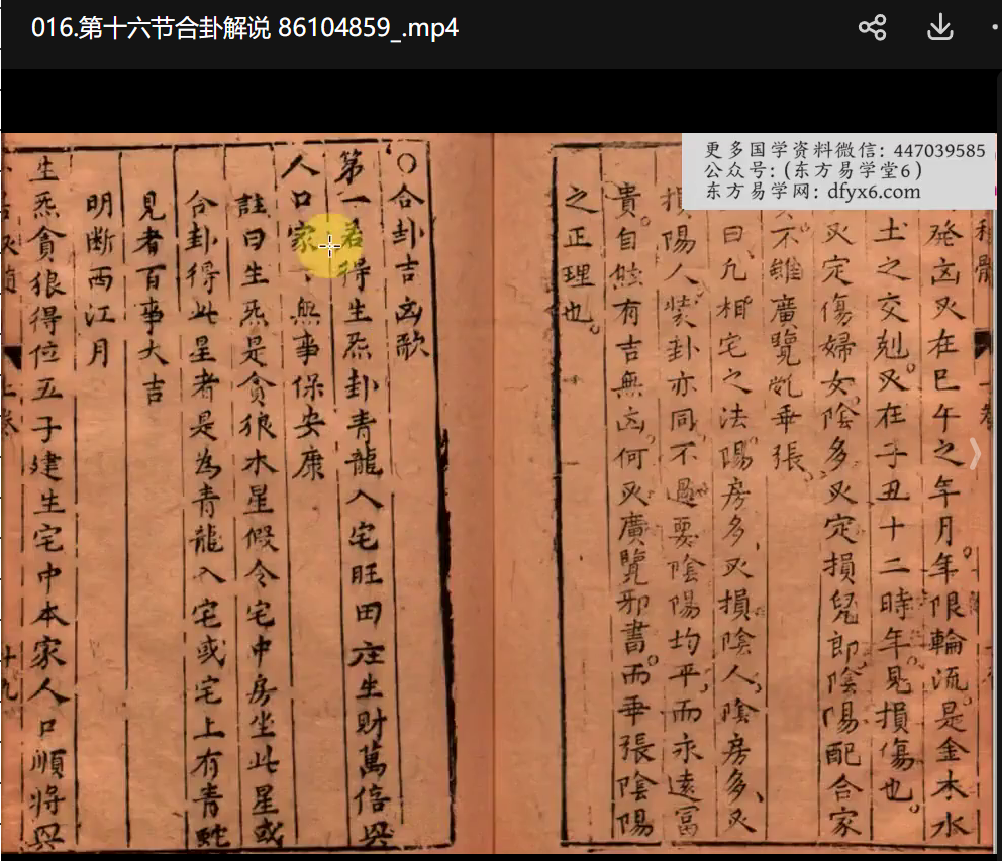 016.第十六节合卦解说 86104859_.mp4
更多国学资料微信：447039585
公众号：（东方易学堂6）
东方易学网：dfyx6.com
発凶災在巳午之年月年限輪流是金木水
土之交剋災在子丑十二時年見損傷也
災定傷婦女陰多災定損兒郎陰陽配合家
不雖廣覽乱乖張
曰凢相宅之法陽房多災損陰人陰房多災
損陽人裝卦亦同不過要陰陽均平而永遠富
貴自然有吉無凶何災廣覽邪書而乖張陰陽
之正理也
○合卦吉凶歌
第一若得生炁卦青龍入宅旺田庄生財萬倍興
人口家無事保安康
註曰生炁是貪狼木星假令宅中房坐此星或
合卦得此星者是為青龍入宅或宅上有青蛇
見者百事大吉
明断西江月
生炁貪狼得位五子建生宅中本家人口順將興